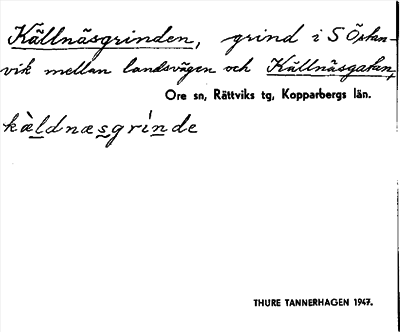 Källnäsgrinden, grind i S Östan-
vik mellan landsvägen och Källnäsgatun,
Ore sn, Rättviks tg, Kopparbergs län.
kàldnæsgrínde
THURE TANNERHAGEN 1947.